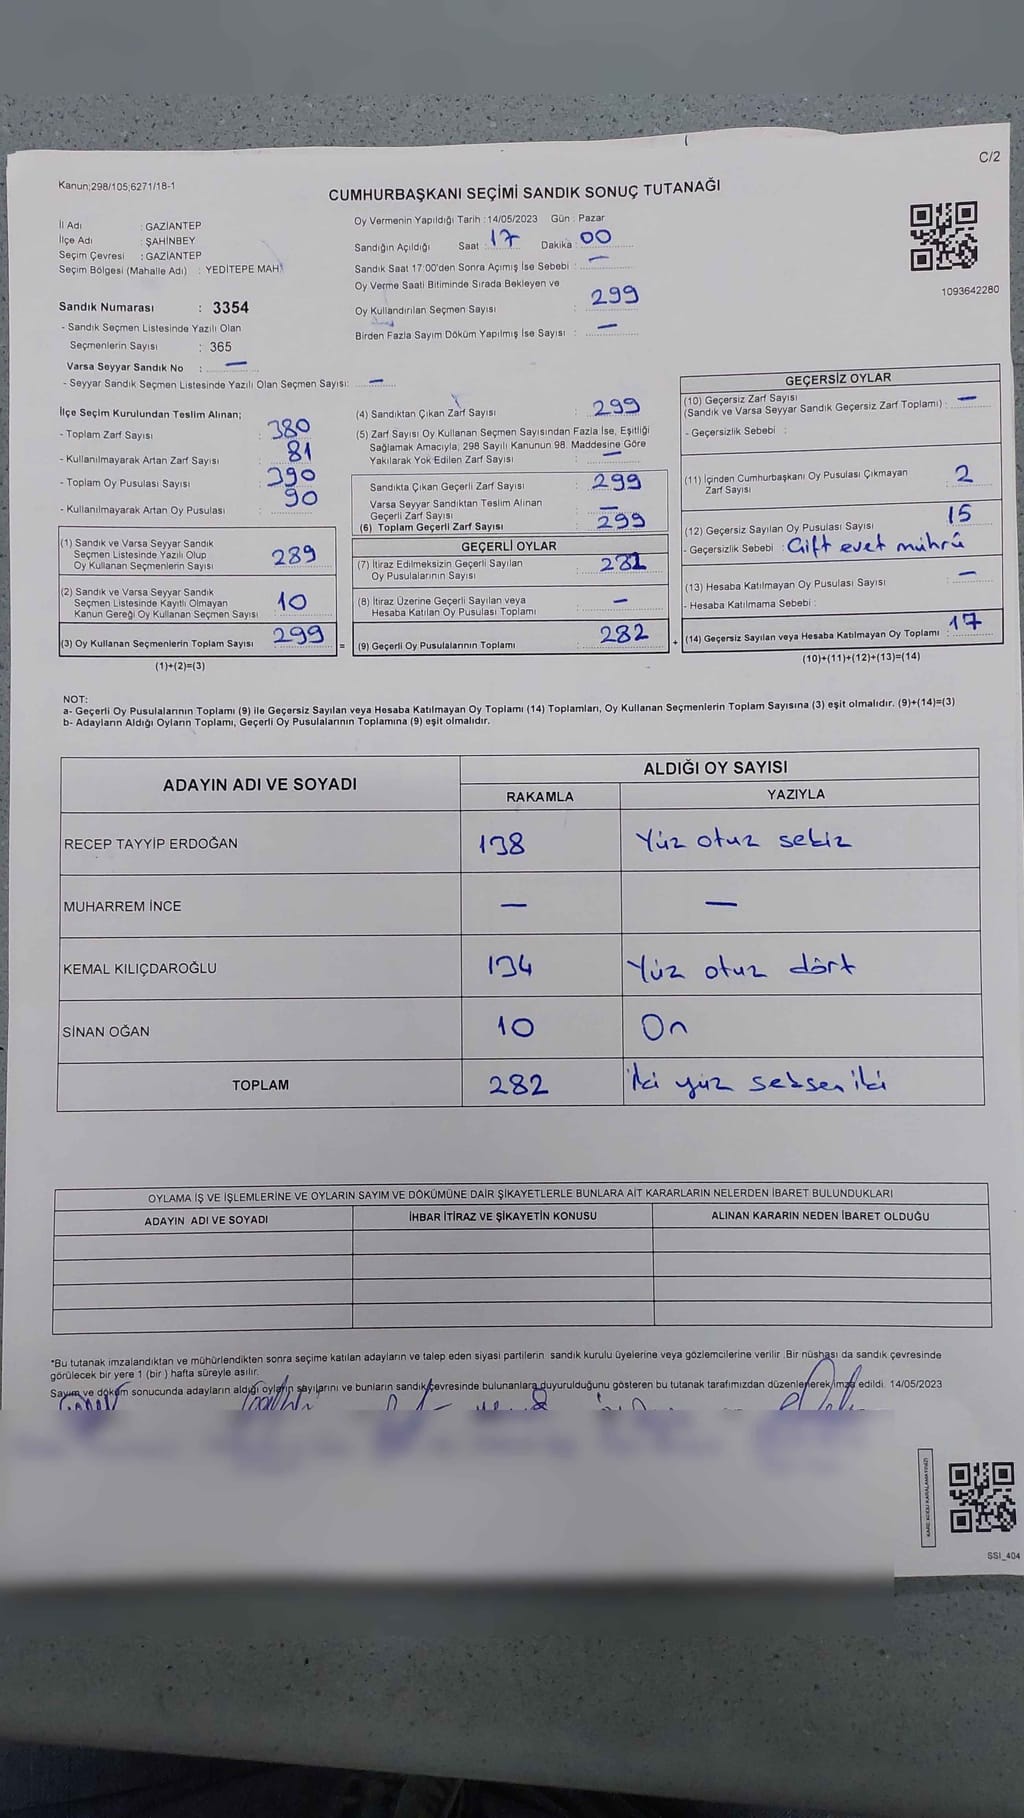 C/2
Kanun;298/105,6271/18-1
CUMHURBAŞKANI SEÇİMİ SANDIK SONUÇ TUTANAĞI
İl Adı : GAZİANTEP
İlçe Adı : ŞAHİNBEY
Seçim Çevresi : GAZİANTEP
Seçim Bölgesi (Mahalle Adı) : YEDİTEPE MAH
Sandık Numarası : 3354
- Sandık Seçmen Listesinde Yazılı Olan
Seçmenlerin Sayısı : 365
Varsa Seyyar Sandık No : —
- Seyyar Sandık Seçmen Listesinde Yazılı Olan Seçmen Sayısı: —
Oy Vermenin Yapıldığı Tarih :14/05/2023 Gün : Pazar
Sandığın Açıldığı Saat : 17 Dakika : 00
Sandık Saat 17:00'den Sonra Açımış İse Sebebi : —
Oy Verme Saati Bitiminde Sırada Bekleyen ve
Oy Kullandırılan Seçmen Sayısı : 299
Birden Fazla Sayım Döküm Yapılmış İse Sayısı : —
1093642280
İlçe Seçim Kurulundan Teslim Alınan;
- Toplam Zarf Sayısı : 380
- Kullanılmayarak Artan Zarf Sayısı : 81
- Toplam Oy Pusulası Sayısı : 390
- Kullanılmayarak Artan Oy Pusulası : 90
(1) Sandık ve Varsa Seyyar Sandık
Seçmen Listesinde Yazılı Olup
Oy Kullanan Seçmenlerin Sayısı : 289
(2) Sandık ve Varsa Seyyar Sandık
Seçmen Listesinde Kayıtlı Olmayan
Kanun Gereği Oy Kullanan Seçmen Sayısı : 10
(3) Oy Kullanan Seçmenlerin Toplam Sayısı : 299
(1)+(2)=(3)
(4) Sandıktan Çıkan Zarf Sayısı : 299
(5) Zarf Sayısı Oy Kullanan Seçmen Sayısından Fazla İse, Eşitliği
Sağlamak Amacıyla; 298 Sayılı Kanunun 98. Maddesine Göre
Yakılarak Yok Edilen Zarf Sayısı : —
Sandıkta Çıkan Geçerli Zarf Sayısı : 299
Varsa Seyyar Sandıktan Teslim Alınan
Geçerli Zarf Sayısı : —
(6) Toplam Geçerli Zarf Sayısı : 299
GEÇERLİ OYLAR
(7) İtiraz Edilmeksizin Geçerli Sayılan
Oy Pusulalarının Sayısı : 282
(8) İtiraz Üzerine Geçerli Sayılan veya
Hesaba Katılan Oy Pusulası Toplamı : —
= (9) Geçerli Oy Pusulalarının Toplamı : 282 +
GEÇERSİZ OYLAR
(10) Geçersiz Zarf Sayısı
(Sandık ve Varsa Seyyar Sandık Geçersiz Zarf Toplamı) : —
- Geçersizlik Sebebi :
(11) İçinden Cumhurbaşkanı Oy Pusulası Çıkmayan
Zarf Sayısı : 2
(12) Geçersiz Sayılan Oy Pusulası Sayısı : 15
- Geçersizlik Sebebi : Çift evet mührü
(13) Hesaba Katılmayan Oy Pusulası Sayısı : —
- Hesaba Katılmama Sebebi :
(14) Geçersiz Sayılan veya Hesaba Katılmayan Oy Toplamı : 17
(10)+(11)+(12)+(13)=(14)
NOT:
a- Geçerli Oy Pusulalarının Toplamı (9) ile Geçersiz Sayılan veya Hesaba Katılmayan Oy Toplamı (14) Toplamları, Oy Kullanan Seçmenlerin Toplam Sayısına (3) eşit olmalıdır. (9)+(14)=(3)
b- Adayların Aldığı Oyların Toplamı, Geçerli Oy Pusulalarının Toplamına (9) eşit olmalıdır.
ADAYIN ADI VE SOYADI ALDIĞI OY SAYISI
RAKAMLA YAZIYLA
RECEP TAYYİP ERDOĞAN 138 Yüz otuz sekiz
MUHARREM İNCE — —
KEMAL KILIÇDAROĞLU 134 Yüz otuz dört
SİNAN OĞAN 10 On
TOPLAM 282 İki yüz seksen iki
OYLAMA İŞ VE İŞLEMLERİNE VE OYLARIN SAYIM VE DÖKÜMÜNE DAİR ŞİKAYETLERLE BUNLARA AİT KARARLARIN NELERDEN İBARET BULUNDUKLARI
ADAYIN ADI VE SOYADI İHBAR İTİRAZ VE ŞİKAYETİN KONUSU ALINAN KARARIN NEDEN İBARET OLDUĞU
*Bu tutanak imzalandıktan ve mühürlendikten sonra seçime katılan adayların ve talep eden siyasi partilerin sandık kurulu üyelerine veya gözlemcilerine verilir .Bir nüshası da sandık çevresinde
görülecek bir yere 1 (bir ) hafta süreyle asılır.
Sayım ve döküm sonucunda adayların aldığı oyların sayılarını ve bunların sandık çevresinde bulunanlara duyurulduğunu gösteren bu tutanak tarafımızdan düzenlenerek imza edildi. 14/05/2023
KARE KODU KARALAMAYINIZ!
SSI_404